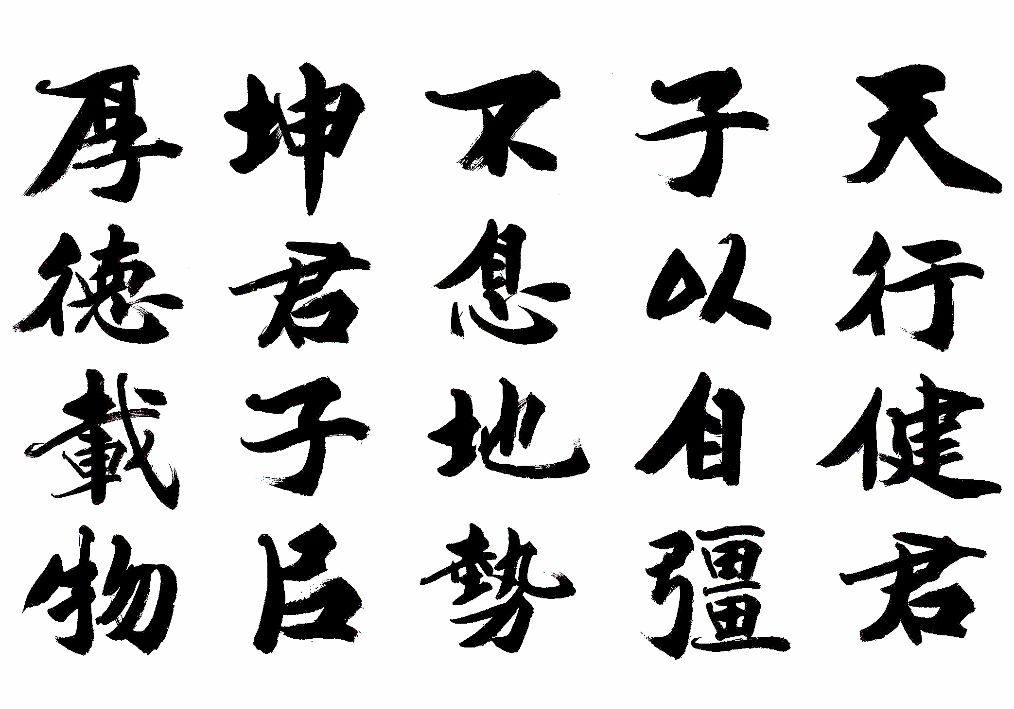 天行健君
子以自彊
不息地勢
坤君子㠯
厚德載物